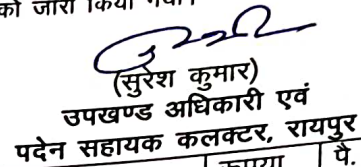 को जारी किया गया।
(सुरेश कुमार)
उपखण्ड अधिकारी एवं
पदेन सहायक कलक्टर, रायपुर
रूपया पै.